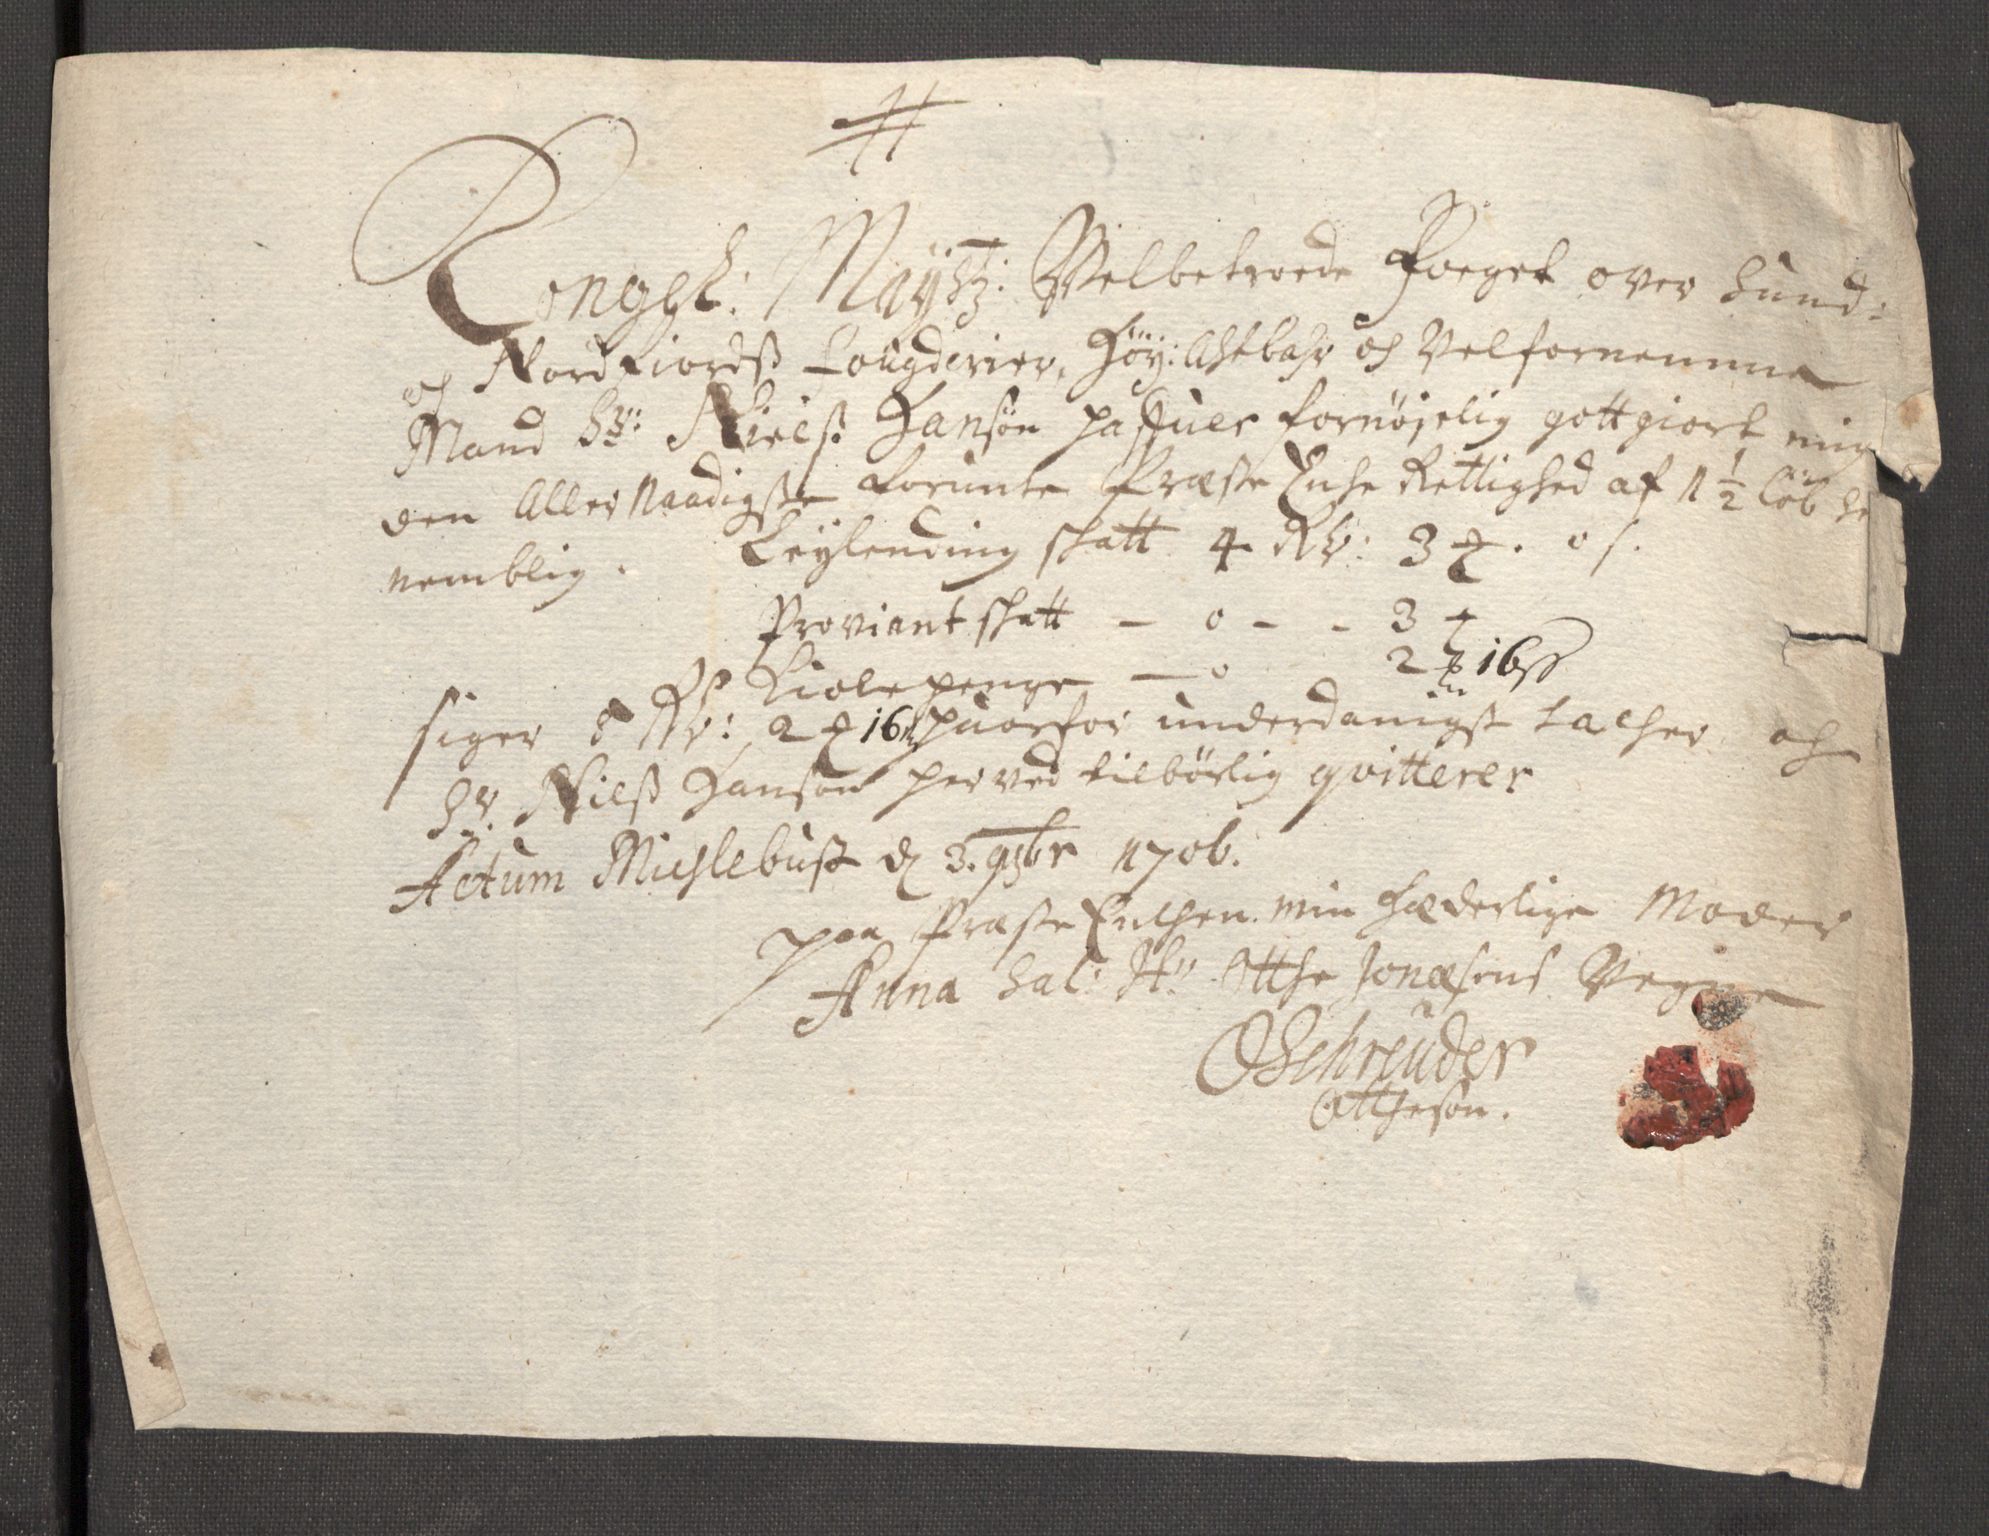 Kongel: Maÿtz: Velbetroede Foeget over Sund:
och Nordfiordß Fougderier, Höÿ: Achtbahr och Velfornemme
Mand Sr: Nielß Hansön hafuer fornöjelig gottgiort mig
den Aller Naadigste Forunte Præste Enche Rettighed af 1 1/2 löb
nemblig. Leÿlending skatt 4 Rd: 3 ꝑ. 0 s.
Proviant skatt - 0 - - 3 ꝑ
Kiolepenge - 0 2 ꝑ 16 s
siger 5 Rd: 2 ꝑ 16 s huorfor underdanigst tacher och
Sr. Nielß Hanson herved tilbörlig qvitterer
Actum Michlebust d 3. 9br 1706.
paa Præste Enchen min Hæderlige Moder
Anna Sal: Hr Otthe Jonæsens Vegne
OSchreuder
Ottheson.